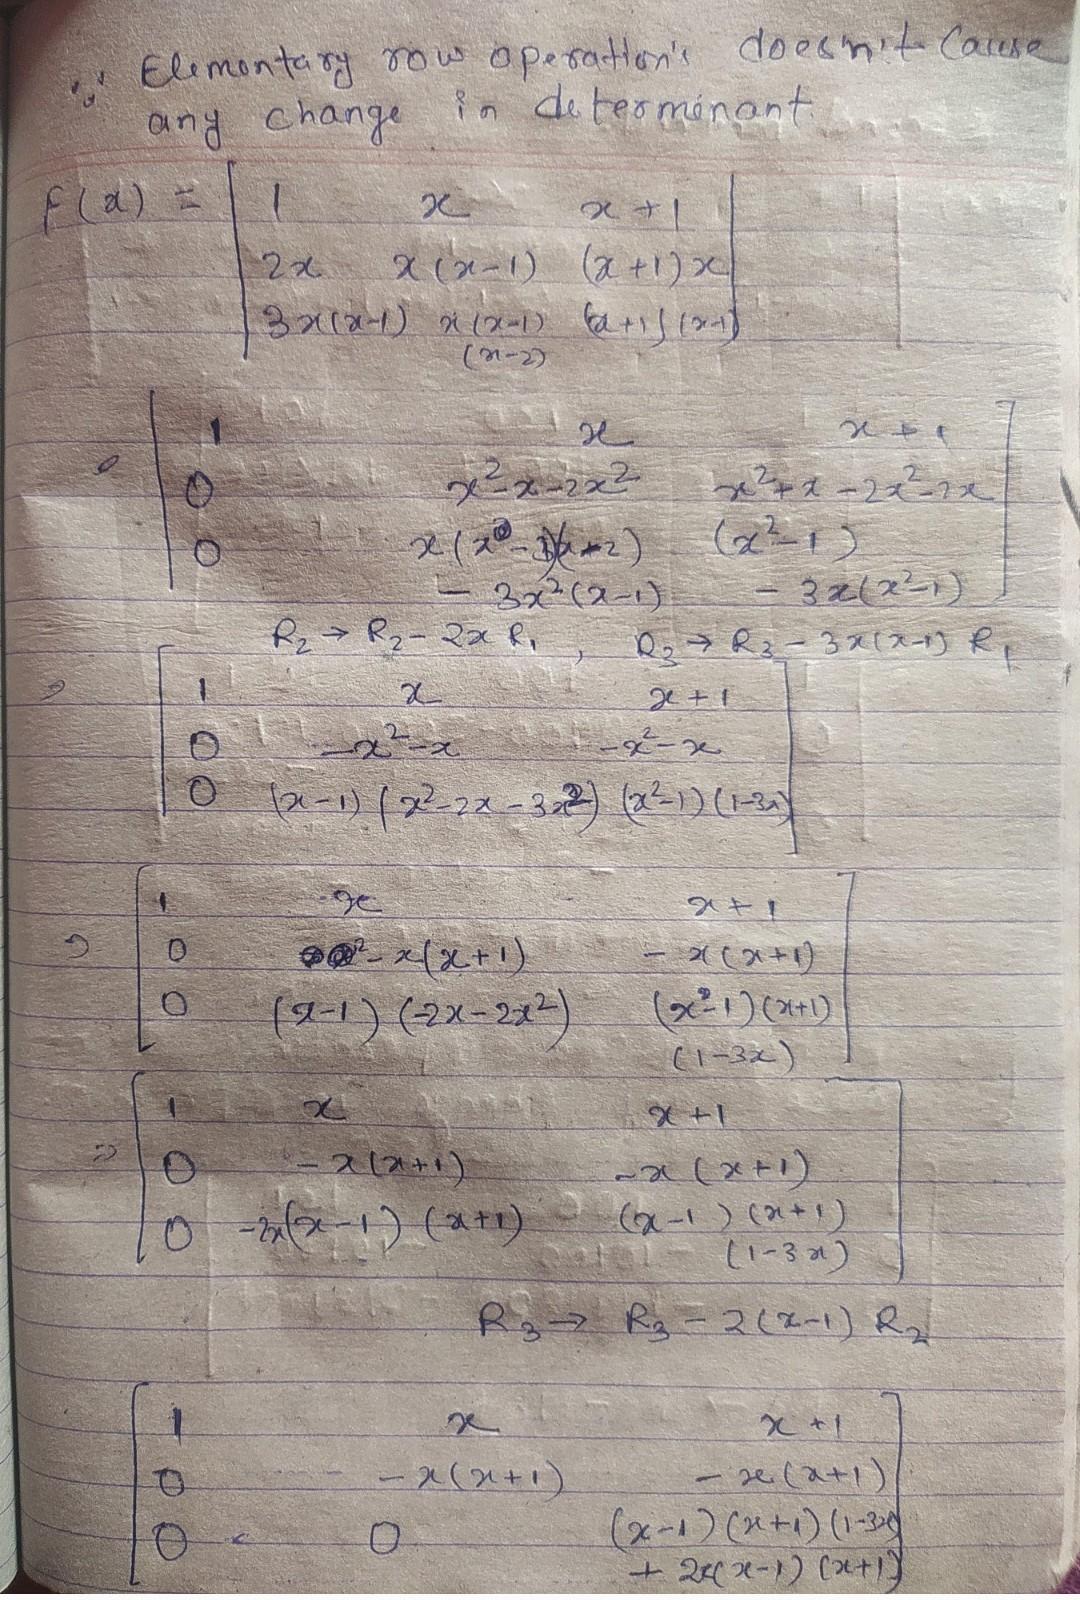 ∵ Elementary row operation's doesn't cause
any change in determinant.
f(x) = | 1 x x+1 |
| 2x x(x-1) (x+1)x |
| 3x(x-1) x(x-1) (x+1)(x-1) |
(x-2)
1 x x+1
0 x²-x-2x² x²+x-2x²-2x
0 x(x-1)(x-2) (x²-1)
- 3x²(x-1) - 3x(x²-1)
R₂ → R₂ - 2x R₁ , R₃ → R₃ - 3x(x-1) R₁
⇒ 1 x x+1
0 -x²-x -x²-x
0 (x-1)(x²-2x-3x²) (x²-1)(1-3x)
⇒ 1 x x+1
0 -x(x+1) -x(x+1)
0 (x-1)(-2x-2x²) (x-1)(x+1)
(1-3x)
⇒ 1 x x+1
0 -x(x+1) -x(x+1)
0 -2x(x-1)(x+1) (x-1)(x+1)
(1-3x)
R₃ → R₃ - 2(x-1) R₂
1 x x+1
0 -x(x+1) -x(x+1)
0 0 (x-1)(x+1)(1-3x)
+ 2x(x-1)(x+1)